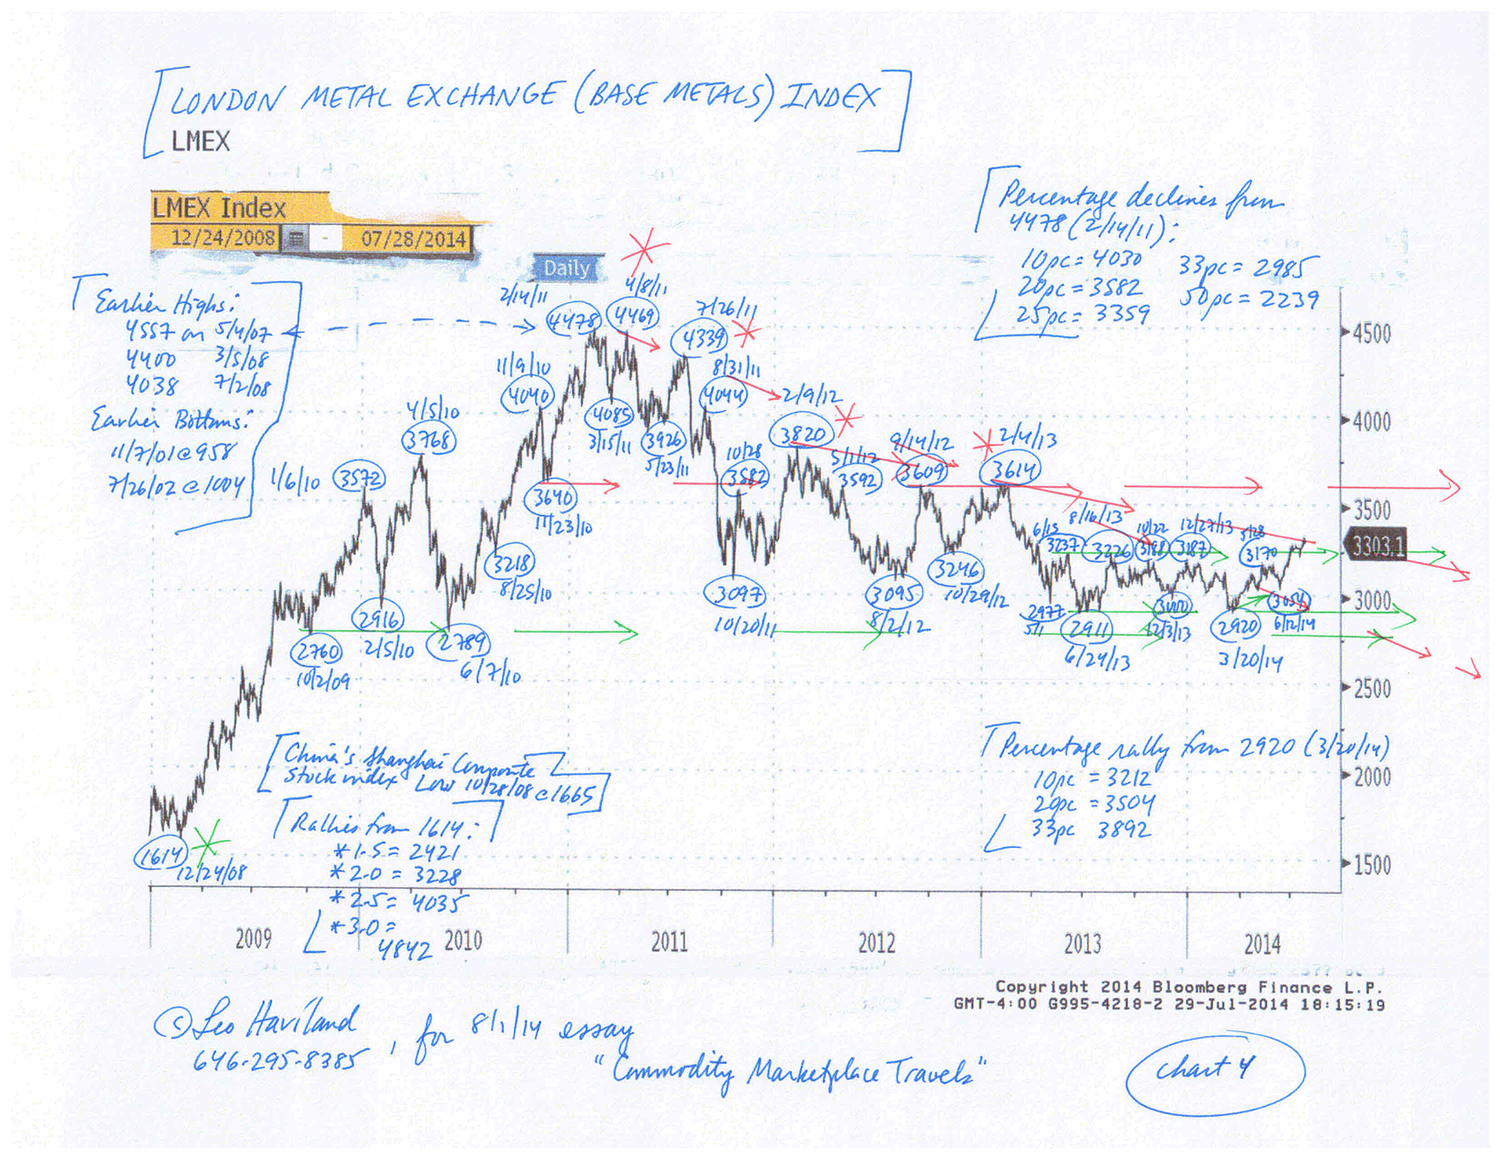 LONDON METAL EXCHANGE (BASE METALS) INDEX
LMEX
LMEX Index
12/24/2008 - 07/28/2014
Daily
Percentage declines from
4478 (2/14/11):
10pc = 4030
20pc = 3582
25pc = 3359
33pc = 2985
50pc = 2239
Earlier Highs:
4557 on 5/4/07
4400 3/5/08
4038 7/2/08
Earlier Bottoms:
11/7/01 @ 958
7/26/02 @ 1004
1614
12/24/08
2760
10/2/09
1/6/10
3572
2916
2/5/10
4/5/10
3768
2789
6/7/10
3218
8/25/10
11/9/10
4040
3640
11/23/10
2/14/11
4478
4085
3/15/11
4/8/11
4469
3926
5/23/11
7/26/11
4339
8/31/11
4044
3097
10/20/11
10/28
3582
2/9/12
3820
5/1/12
3592
3095
8/2/12
9/14/12
3609
3246
10/29/12
2/4/13
3614
2977
5/1
6/15
3237
2911
6/24/13
8/16/13
3226
10/22
3188
3000
12/3/13
12/27/13
3187
2920
3/20/14
3170
3054
6/12/14
4500
4000
3500
3303.1
3000
2500
2000
1500
China's Shanghai Composite
Stock index Low 10/28/08 @ 1665
Rallies from 1614:
*1.5 = 2421
*2.0 = 3228
*2.5 = 4035
*3.0 =
4842
Percentage rally from 2920 (3/20/14)
10pc = 3212
20pc = 3504
33pc 3892
2009 2010 2011 2012 2013 2014
Copyright 2014 Bloomberg Finance L.P.
GMT-4:00 G995-4218-2 29-Jul-2014 18:15:19
© Leo Haviland
646-295-8385, for 8/1/14 essay
"Commodity Marketplace Travels"
Chart 4